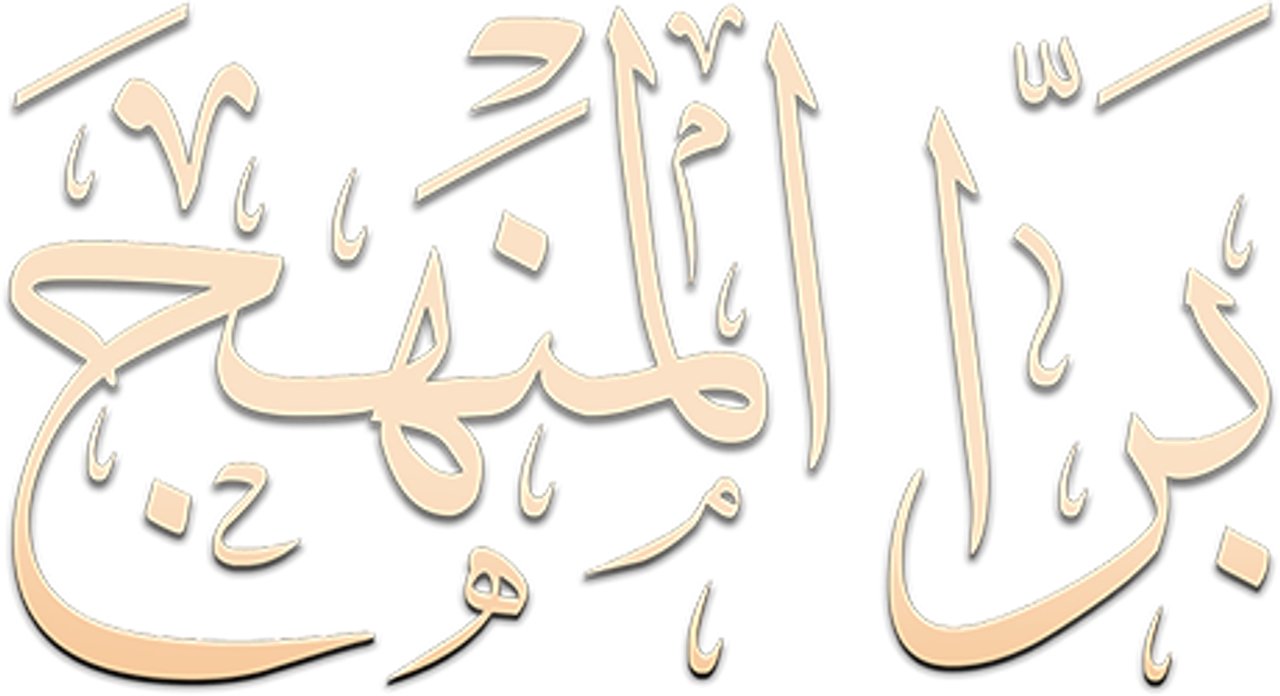 برَّا المنهج